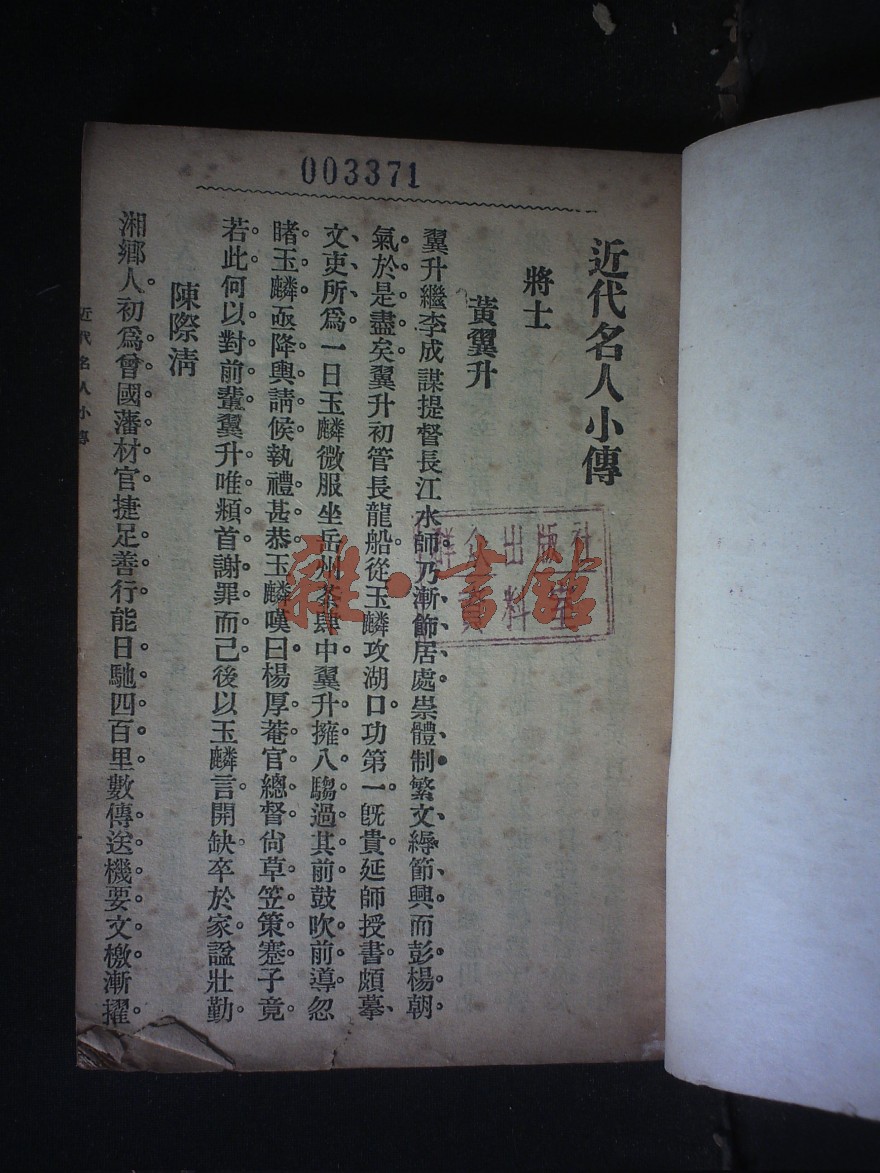 003371
近代名人小傳
將士
黃翼升
翼升繼李成謀提督長江水師乃漸飾居處崇體制繁文縟節興而彭楊朝
氣於是盡矣翼升初管長龍船從玉麟攻湖口功第一旣貴延師授書頗摹
文吏所爲一日玉麟微服坐岳州茶肆中翼升擁八騶過其前鼓吹前導忽
睹玉麟亟降輿請候執禮甚恭玉麟嘆曰楊厚菴官總督尙草笠策蹇子竟
若此何以對前輩翼升唯頮首謝罪而已後以玉麟言開缺卒於家諡壯勤
陳際清
湘鄉人初爲曾國藩材官捷足善行能日馳四百里數傳送機要文檄漸擢
近代名人小傳
群众出版社
資料室
雜·書館